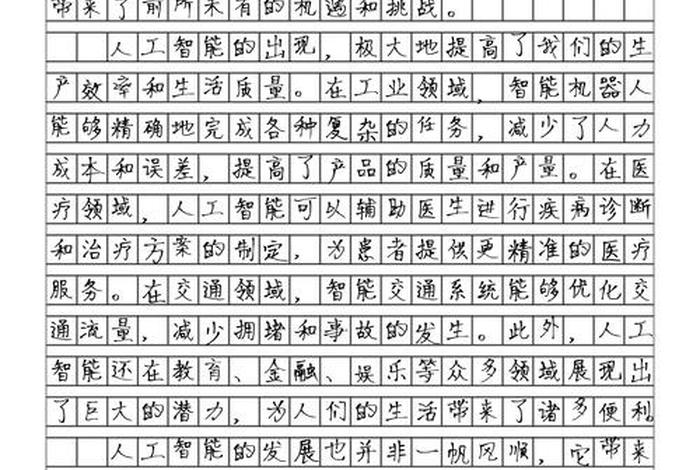 带来了前所未有的机遇和挑战。
人工智能的出现，极大地提高了我们的生
产效率和生活质量。在工业领域，智能机器人
能够精确地完成各种复杂的任务，减少了人力
成本和误差，提高了产品的质量和产量。在医
疗领域，人工智能可以辅助医生进行疾病诊断
和治疗方案的制定，为患者提供更精准的医疗
服务。在交通领域，智能交通系统能够优化交
通流量，减少拥堵和事故的发生。此外，人工
智能还在教育、金融、娱乐等众多领域展现出
了巨大的潜力，为人们的生活带来了诸多便利。
人工智能的发展也并非一帆风顺，它带来